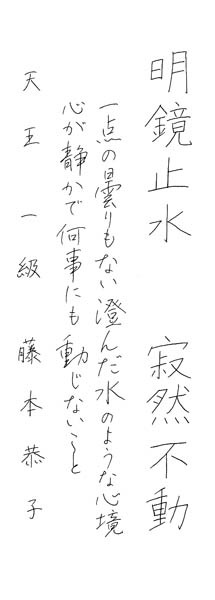 明鏡止水 寂然不動
一点の曇りもない澄んだ水のような心境
心が静かで何事にも動じないこと
天王 一級 藤本恭子